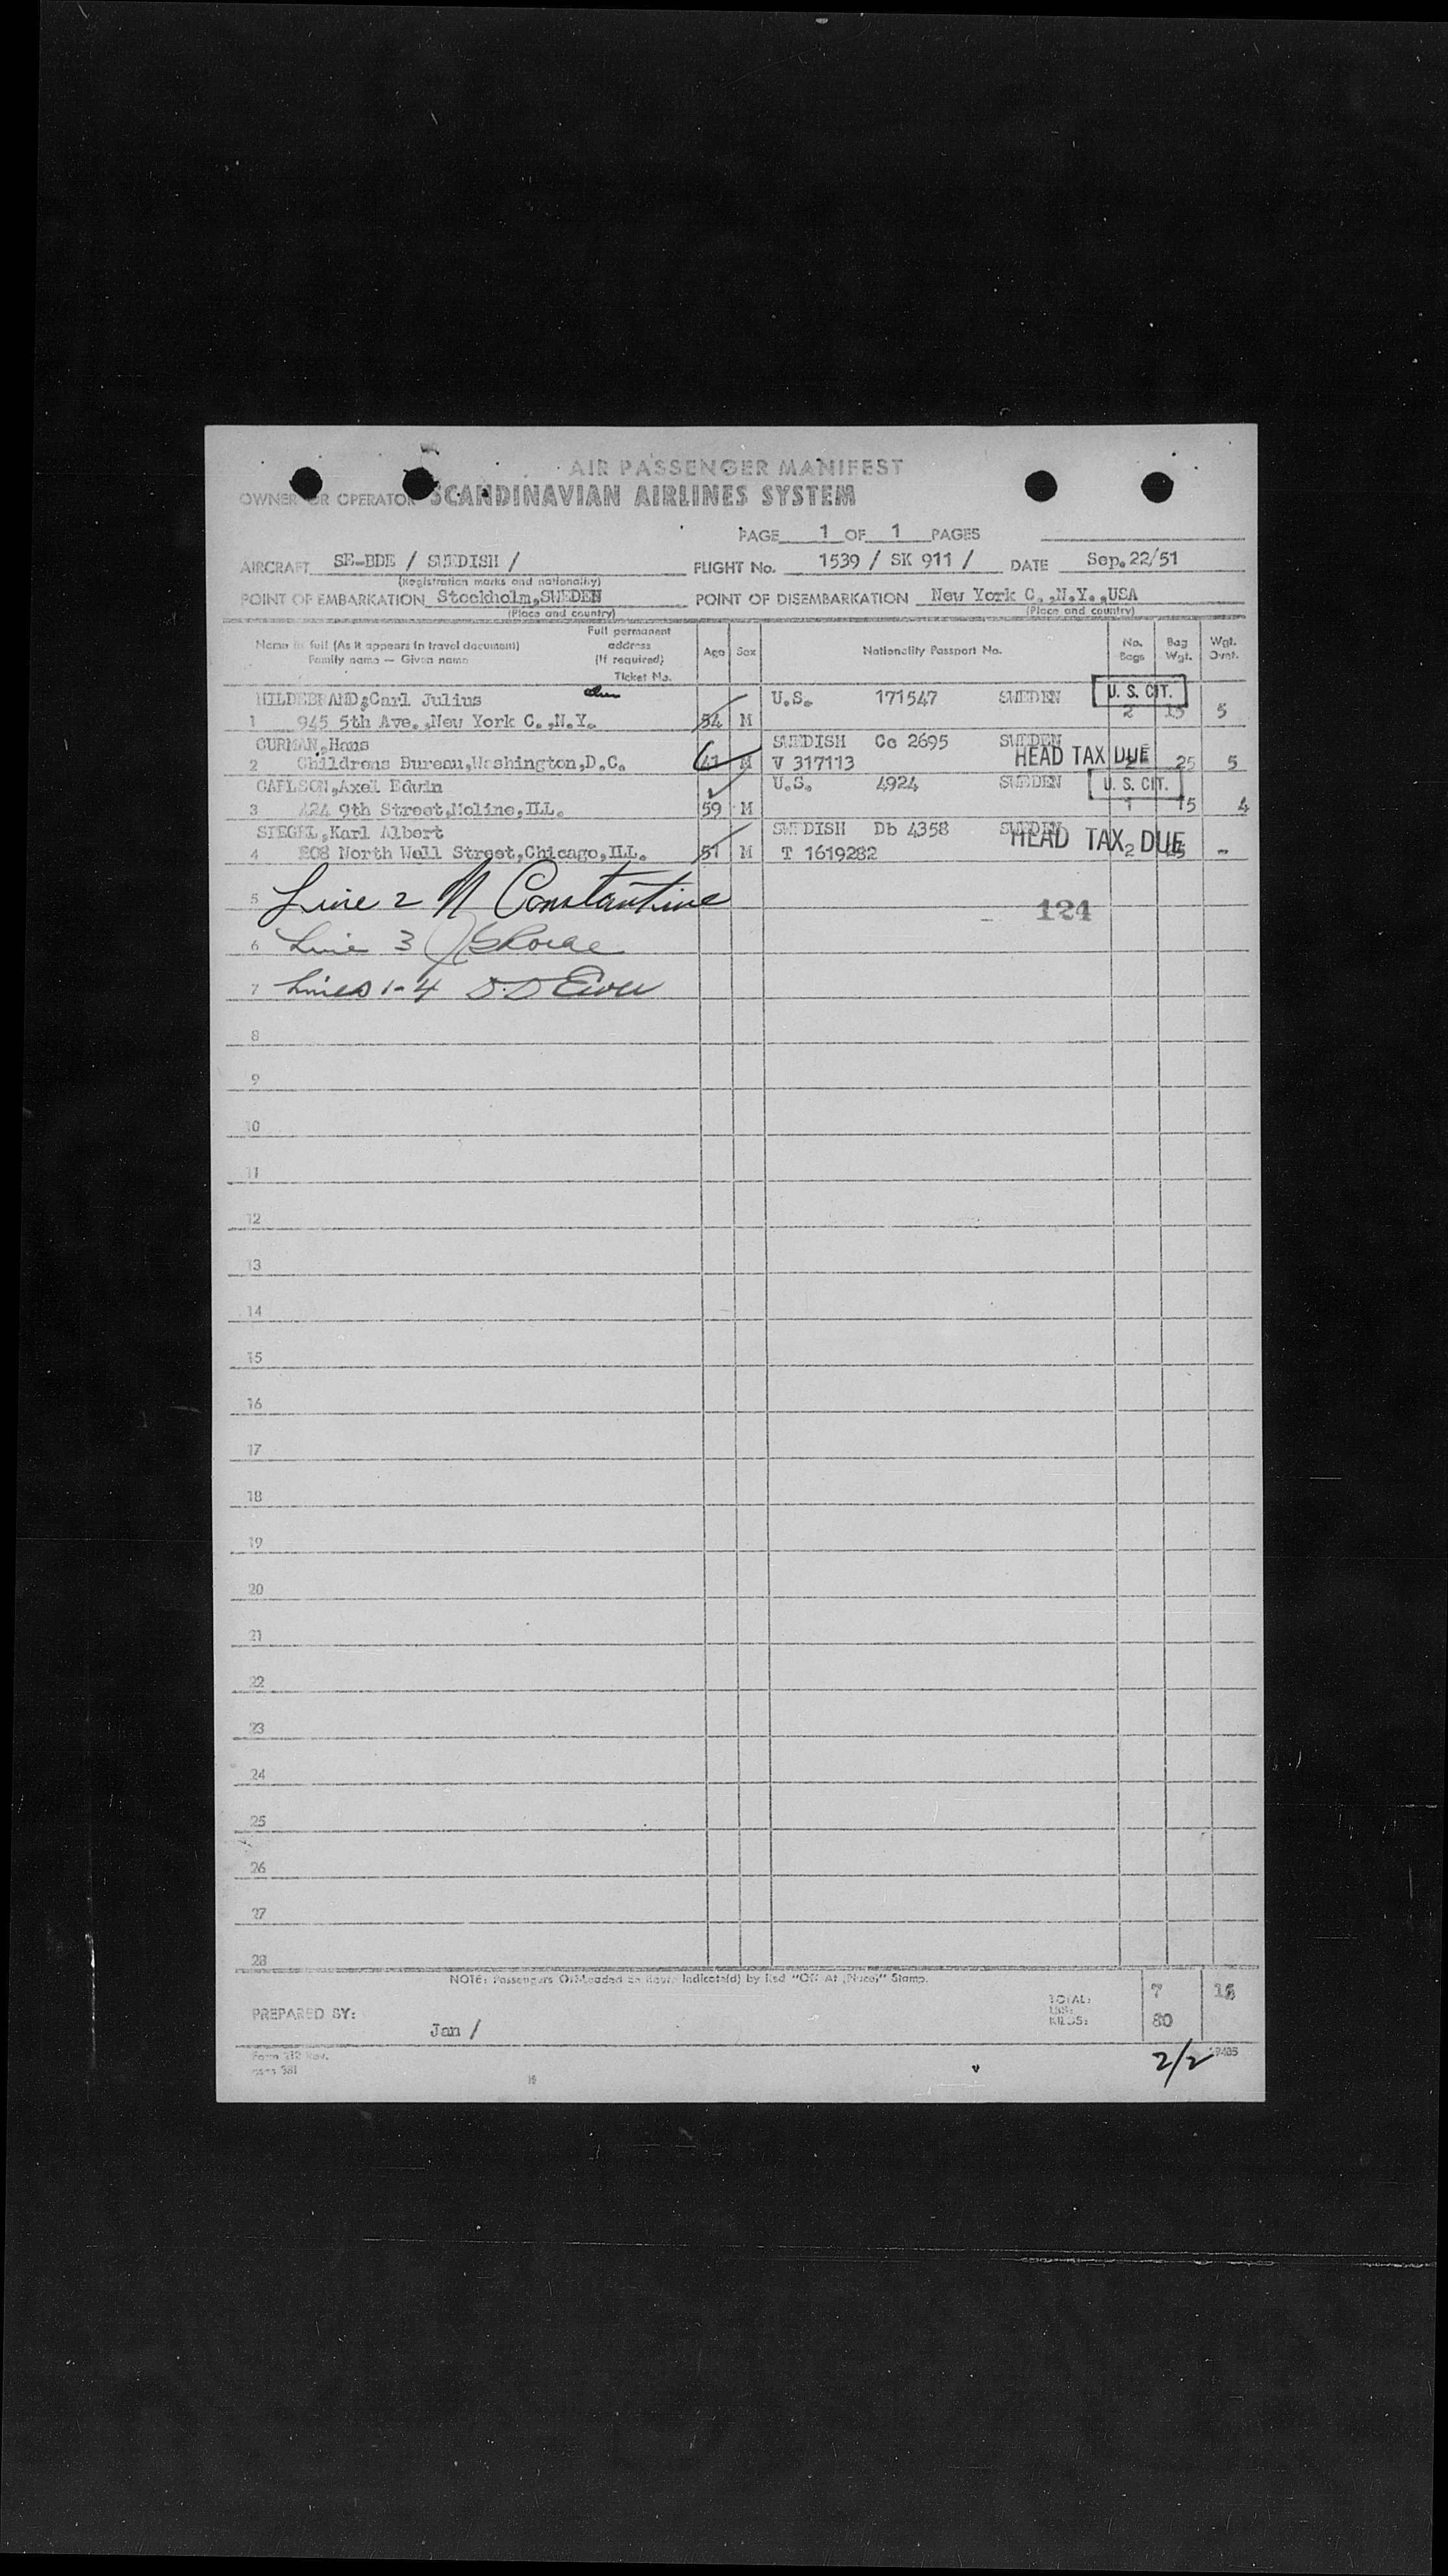 AIR PASSENGER MANIFEST
OWNER OR OPERATOR SCANDINAVIAN AIRLINES SYSTEM
PAGE 1 OF 1 PAGES
AIRCRAFT SE-BDE / SWEDISH / FLIGHT No. 1539 / SK 911 / DATE Sep.22/51
(Registration marks and nationality)
POINT OF EMBARKATION Stockholm,SWEDEN POINT OF DISEMBARKATION New York C.,N.Y.,USA
(Place and country) (Place and country)
Name in full (As it appears in travel document) Family name — Given name Full permanent address (If required) Ticket No. Age Sex Nationality Passport No. No. Bags Bag Wgt. Wgt. Ovnt.
HILDEBRAND,Carl Julius U.S. 171547 SWEDEN U. S. CIT.
1 945 5th Ave.,New York C.,N.Y. 54 M 2 15 5
CURMAN,Hans SWEDISH Cc 2695 SWEDEN
2 Childrens Bureau,Washington,D.C. 41 M V 317113 HEAD TAX DUE 2 25 5
CARLSON,Axel Edwin U.S. 4924 SWEDEN U. S. CIT.
3 424 9th Street,Moline,ILL. 59 M 1 15 4
SIEGEL,Karl Albert SWEDISH Db 4358 SWEDEN
4 208 North Wall Street,Chicago,ILL. 51 M T 1619282 HEAD TAX DUE 2 25 -
5 Line 2 N Constantine 124
6 Line 3
7 Lines 1-4 D.D
8
9
10
11
12
13
14
15
16
17
18
19
20
21
22
23
24
25
26
27
28
NOTE: Passengers Offloaded En Route Indicate(d) by Red "Off At (Place)" Stamp.
TOTAL: 7
LBS:
KILOS: 80
PREPARED BY:
Jan /
Form 312 Rev.
2/2